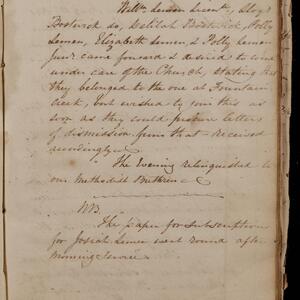 Willm Lemen Licent, Aley'r
Bostwick do, Delilah Bostwick, Polly
Lemen, Elizabeth Lemen & Polly Lemen
Junr. came forward & desired to come
under care of the Church, stating that
they belonged to the one at Fountain
Creek, but wished to join this as
soon as they could procure letters
of dismission from that - received
accordingly -
The Evening relinquished to
our Methodist Brethren -
NB.
The paper for subscriptions
for Josiah Lemen went round after
morning service